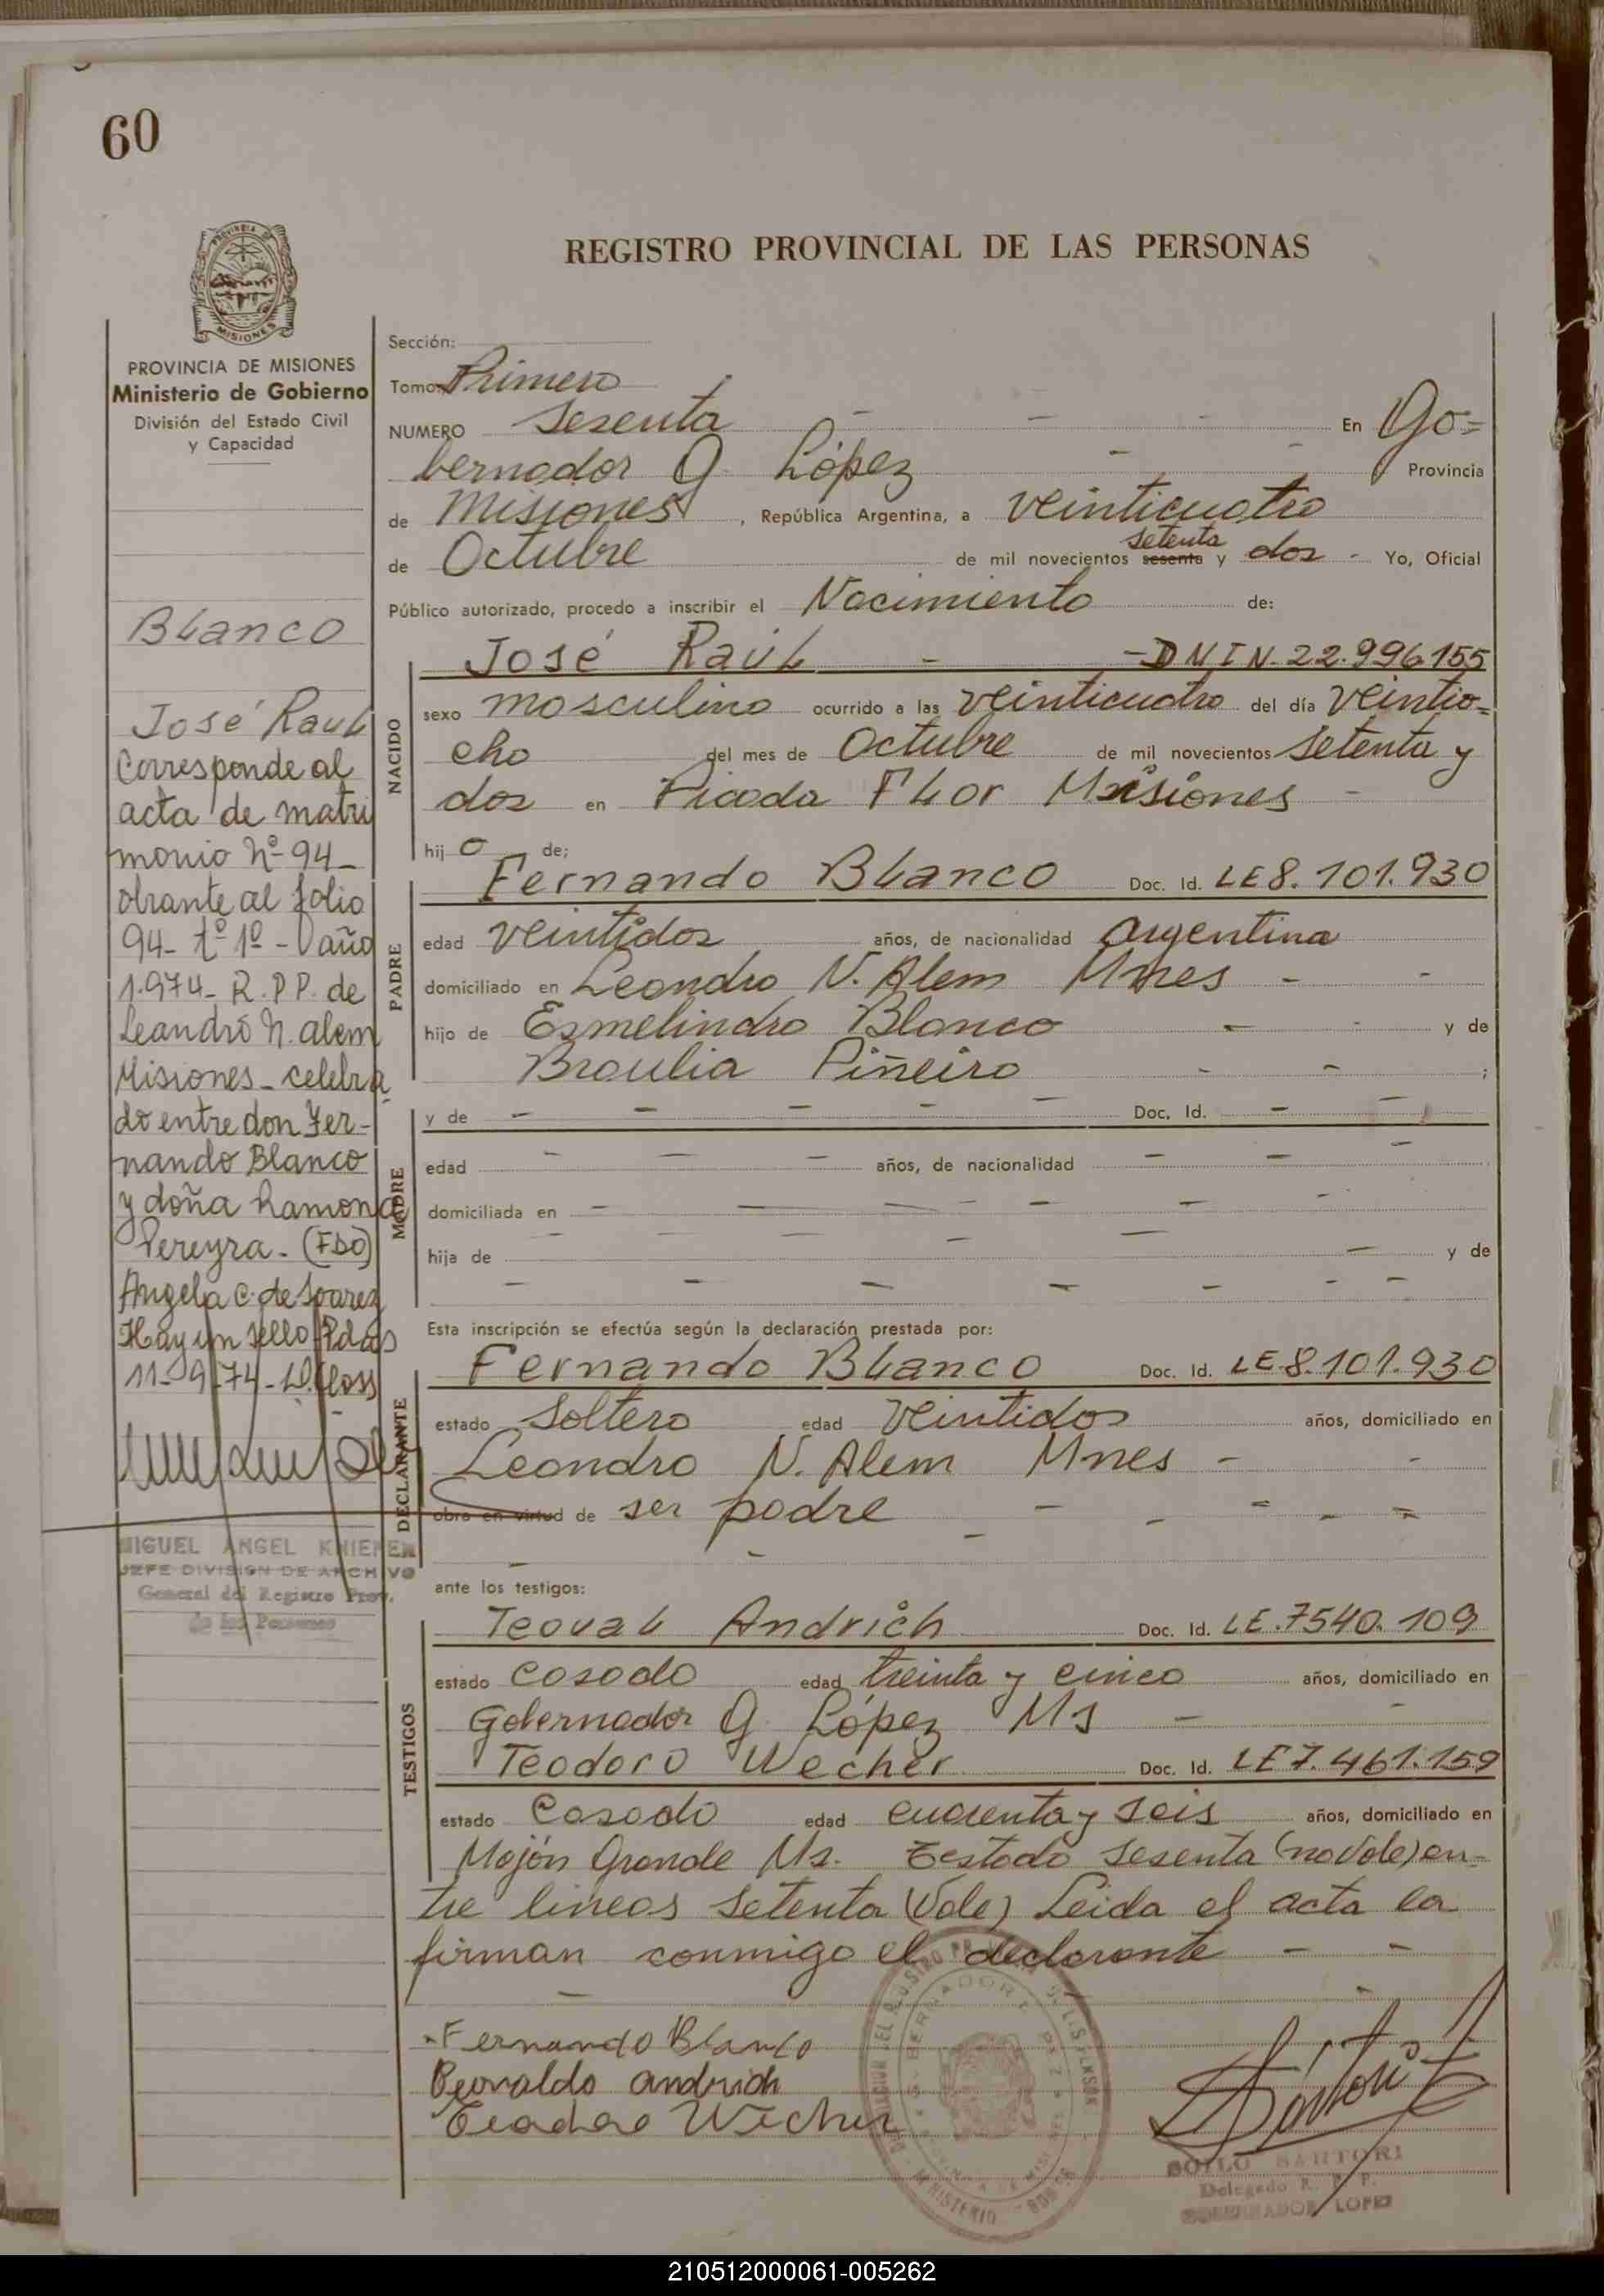 60
REGISTRO PROVINCIAL DE LAS PERSONAS
PROVINCIA DE MISIONES
Ministerio de Gobierno
División del Estado Civil
y Capacidad
Blanco
José Raul
Corresponde al
acta de matri
monio Nº 94-
obrante al folio
94- tº 1º - año
1.974- R.P.P. de
Leandro N. alem
Misiones - celebra
do entre don Fer-
nando Blanco
y doña Ramona
Pereyra - (FDO)
Angela C. de Soarez
Hay un sello Pdas
11-9-74-
MIGUEL ANGEL
JEFE DIVISION DE ARCHIVO
General del Registro Prov.
de las Personas
Sección:
Tomo: Primero
NUMERO Sesenta - - - En Go=
bernador G López - - Provincia
de Misiones, República Argentina, a veinticuatro
de Octubre de mil novecientos sesenta setenta y dos - Yo, Oficial
Público autorizado, procedo a inscribir el Nacimiento de:
NACIDO
José Raúl - - DNI N. 22.996.155
sexo masculino ocurrido a las veinticuatro del día veintio=
cho del mes de Octubre de mil novecientos setenta y
dos en Picada Flor Misiones -
hijo de;
PADRE
Fernando Blanco Doc. Id. LE 8.101.930
edad veintidos años, de nacionalidad argentina
domiciliado en Leandro N. Alem Mnes - -
hijo de Esmelindro Blanco - - y de
Braulia Piñeiro - - ;
MADRE
y de - - - - - Doc. Id. - -
edad - - - años, de nacionalidad - - -
domiciliada en - - - - - -
hija de - - - - - y de
- - - - - - -
Esta inscripción se efectúa según la declaración prestada por:
DECLARANTE
Fernando Blanco Doc. Id. LE.8.101.930
estado Soltero edad veintidos años, domiciliado en
Leandro N. Alem Mnes - -
obra en virtud de ser padre - - - - -
ante los testigos:
TESTIGOS
Teoval Andrich Doc. Id. LE.7540.109
estado casado edad treinta y cinco años, domiciliado en
Gobernador G. López Ms - -
Teodoro Wecher Doc. Id. LE 7.461.159
estado Casado edad cuarenta y seis años, domiciliado en
Mojón Grande Ms. Testado sesenta (no vale) en-
tre lineas setenta (Vale) Leida el acta la
firman conmigo el declarante - -
Fernando Blanco
andrich
Wecher
SARTORI
Delegado R. P. P.
GOBERNADOR LOPEZ
210512000061-005262